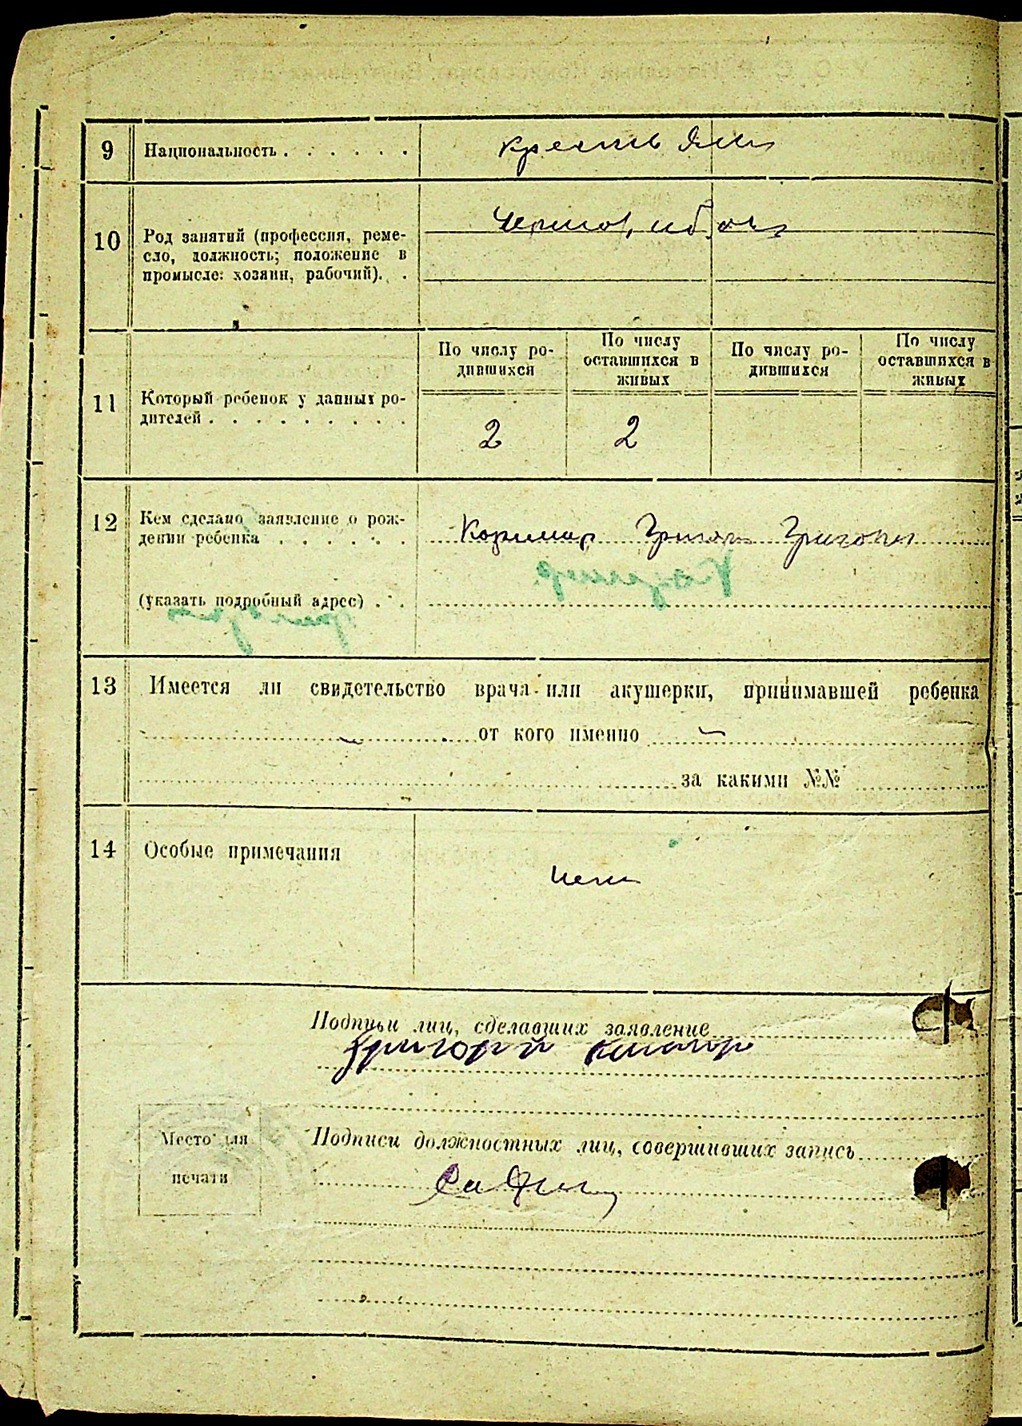 9 Национальность . . . . . . крестьяне
10 Род занятий (профессия, реме-
сло, должность; положение в
промысле: хозяин, рабочий). .
11 Который ребенок у данных ро-
дителей . . . . . . . . .
По числу ро-
дившихся
По числу
оставшихся в
живых
По числу ро-
дившихся
По числу
оставшихся в
живых
2 2
12 Кем сделано заявление о рож-
дении ребенка . . . . . .
(указать подробный адрес) . .
13 Имеется ли свидетельство врача или акушерки, принимавшей ребенка
от кого именно
за какими №№
14 Особые примечания
нет
Подписи лиц, сделавших заявление
Григорий
Место для
печати
Подписи должностных лиц, совершивших запись